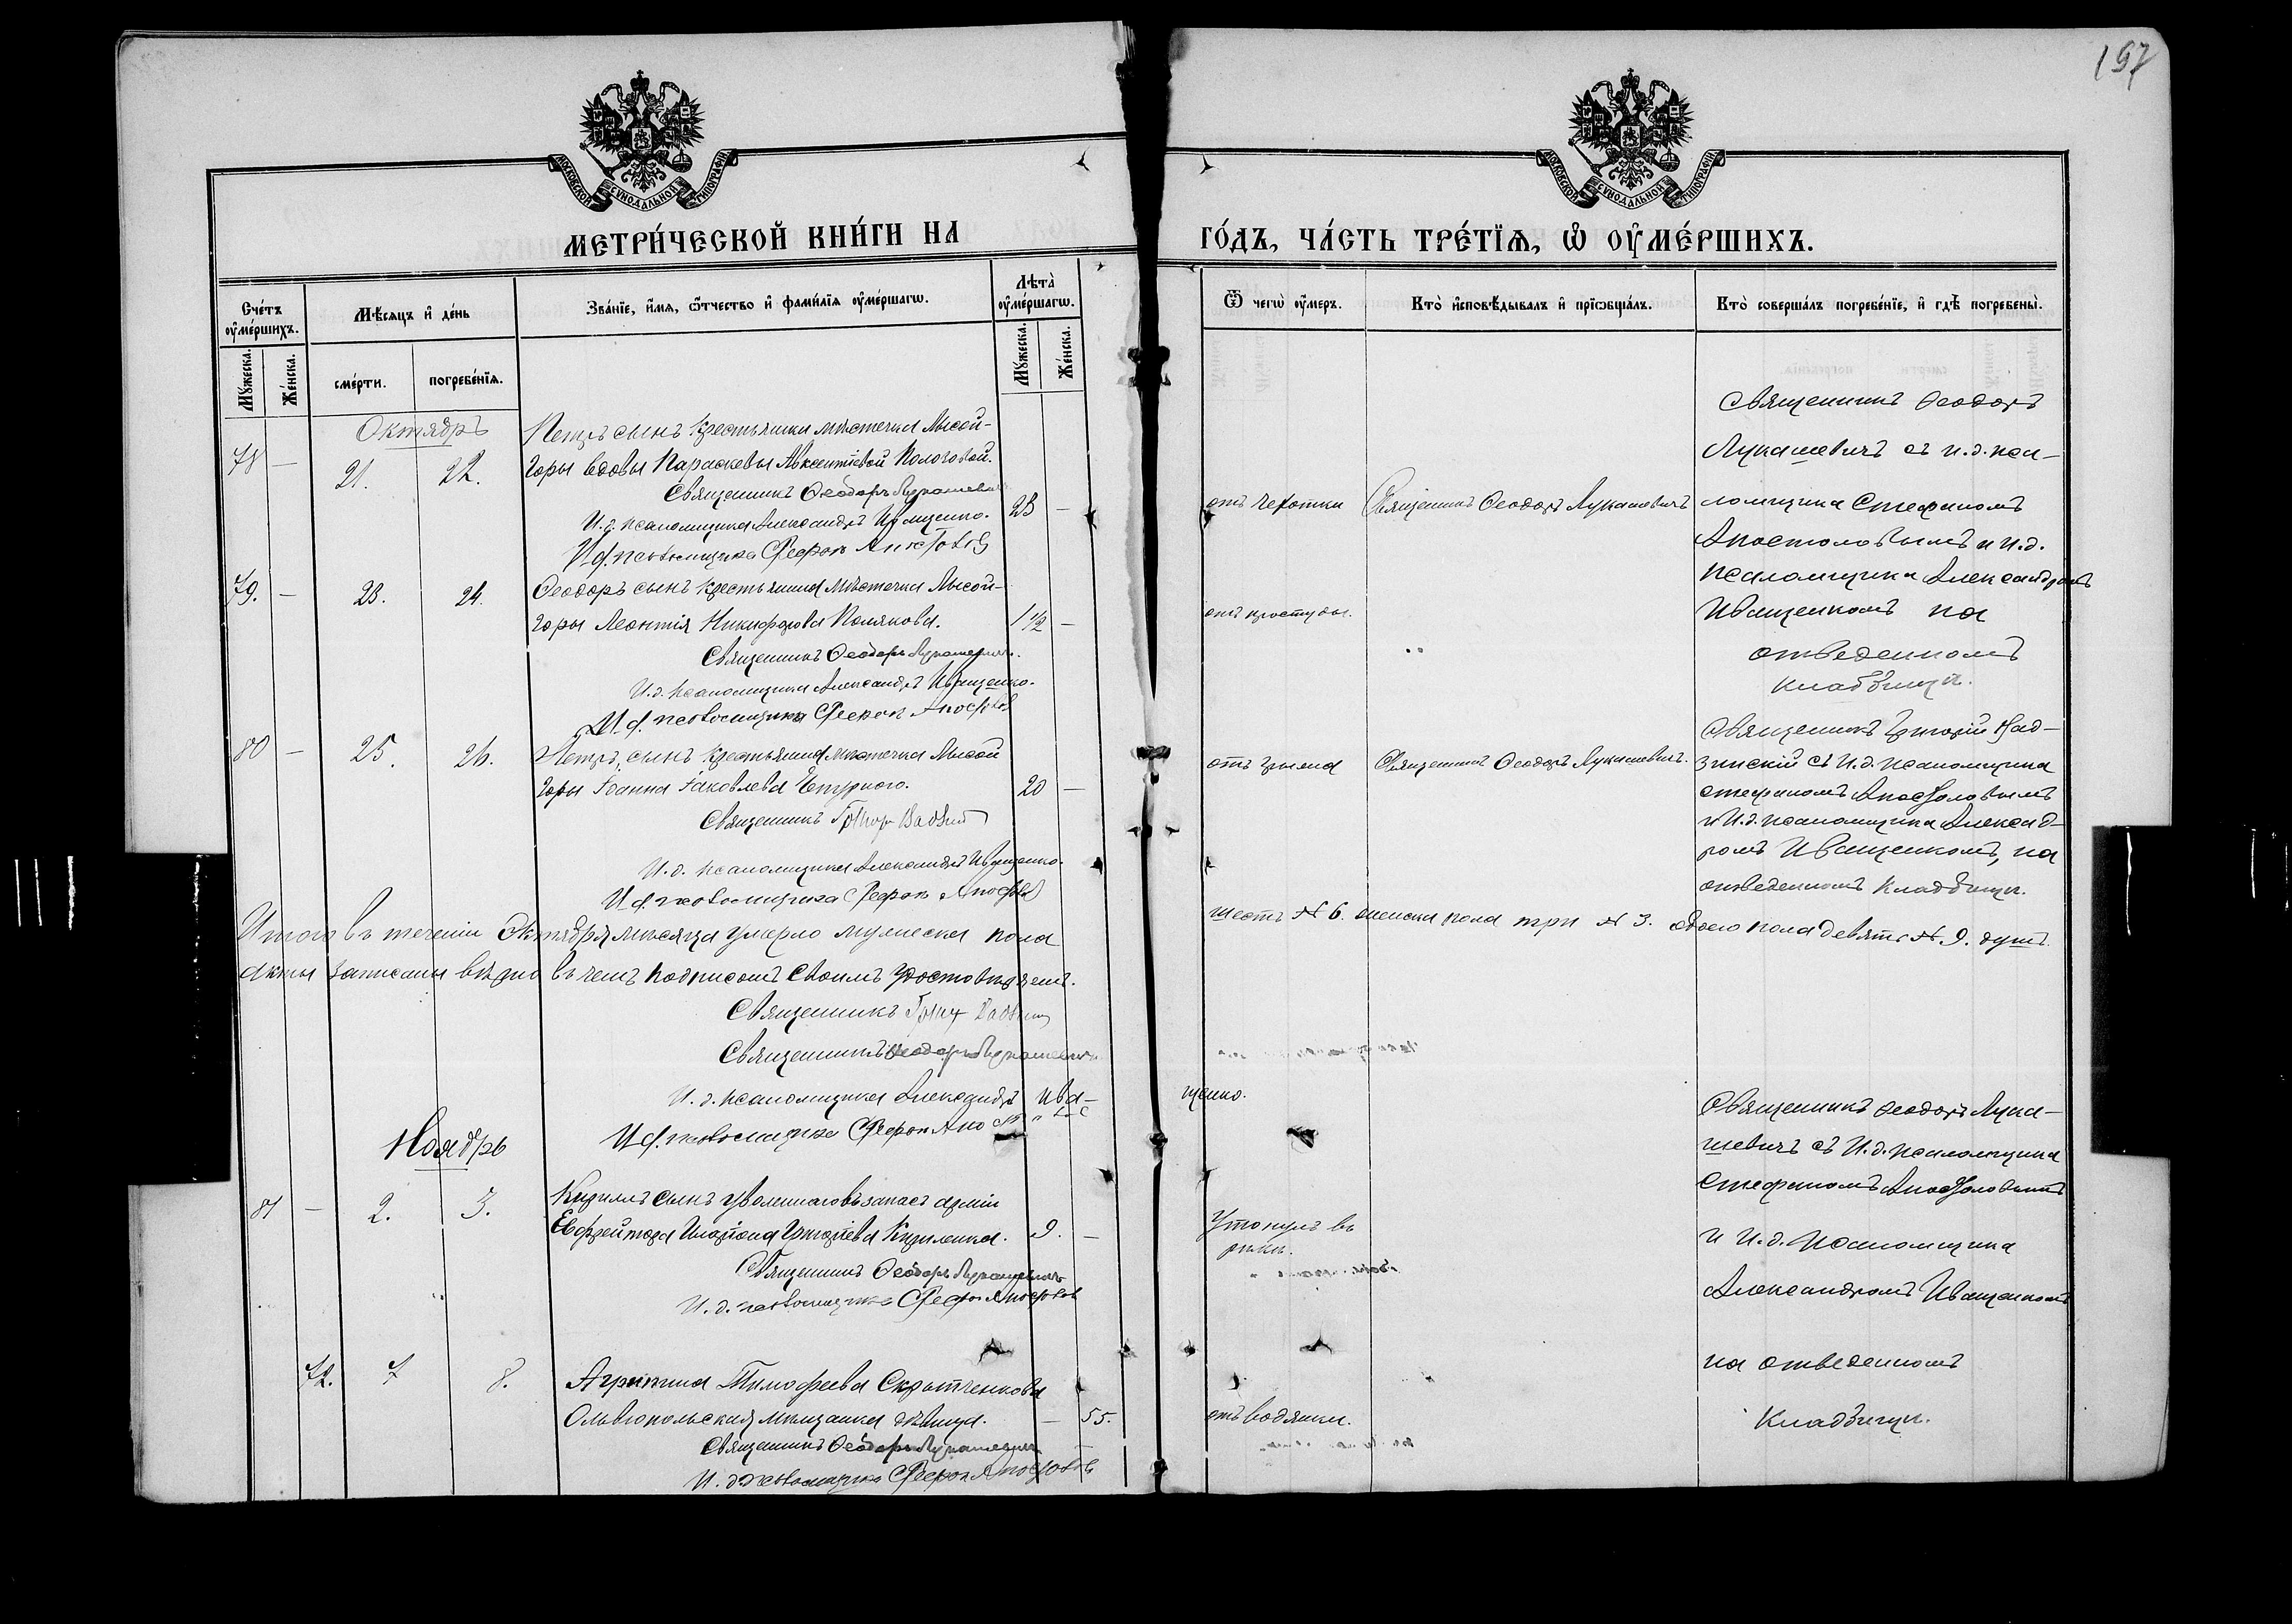 197
МОСКОВСКОЙ СѴНОДАЛЬНОЙ ТИПОГРАФІИ
МОСКОВСКОЙ СѴНОДАЛЬНОЙ ТИПОГРАФІИ
МЕТРИ́ЧЕСКОЙ КНИ́ГИ НА
ГО́ДЪ, ЧА́СТЬ ТРЕ́ТІѦ, Ѡ҆ ОУ҆МЕ́РШИХЪ.
Сче́тъ оу҆ме́ршихъ.
Мꙋ́жеска.
Же́нска.
Мѣ́сяцъ и҆ де́нь
сме́рти.
погребе́нїѧ.
Зва́нїе, и҆́мѧ, ѻ҆́тчество и҆ фами́лїѧ оу҆ме́ршагѡ.
Лѣ́та оу҆ме́ршагѡ.
Мꙋ́жеска.
Же́нска.
Ѿ чегѡ̀ оу҆́меръ.
Кто̀ и҆сповѣ́дывалъ и҆ прїѡбща́лъ.
Кто̀ соверша́лъ погребе́нїе, и҆ гдѣ̀ погребены̀.
Октябрь
78 — 21. 22.
Петръ сынъ крестьянки мѣстечка Лысой-
горы вдовы Параскевы Авксентіевой Пологовой.
23 —
Священникъ Ѳеодоръ Лукашевичъ
И. д. псаломщика Александръ Иващенко.
И. д. псаломщика Стефан Апостолов
отъ чехотки
Священникъ Ѳеодоръ Лукашевичъ
Священникъ Ѳеодоръ
Лукашевичъ съ и. д. пса-
ломщика Стефаномъ
Апостоловымъ и и. д.
псаломщика Александромъ
Иващенкомъ на
отведенномъ
кладбищѣ.
79. — 23. 24.
Ѳеодоръ сынъ крестьянина мѣстечка Лысой-
горы Леонтія Никифорова Полякова.
1½ —
Священникъ Ѳеодоръ Лукашевичъ.
И. д. псаломщика Александръ Иващенко.
И. д. псаломщика Стефан Апостолов
отъ простуды.
80 — 25. 26.
Петръ, сынъ крестьянина мѣстечка Лысой
горы Іоанна Іаковлева Чепурного.
20 —
Священникъ
И. д. псаломщика Александръ Иващенко.
И. д. псаломщика Стефан Апостолов
отъ
Священникъ Ѳеодоръ Лукашевичъ.
Священникъ Григорій
съ И. д. псаломщика
Стефаномъ Апостоловымъ
и И. д. псаломщика Александ-
ромъ Иващенкомъ, на
отведенномъ кладбищѣ.
Итого въ теченіи Октября мѣсяца умерло мужеска пола
шесть № 6. женска пола три № 3. обоего пола девять № 9. душъ.
Акты записаны вѣрно въ чемъ подписомъ своимъ удостовѣряемъ.
Священникъ
Священникъ Ѳеодоръ Лукашевичъ
И. д. псаломщика Александръ Ива-
щенко.
И. д. псаломщика Стефан
Ноябрь
81 — 2. 3.
Кириллъ сынъ уволеннаго въ запасъ арміи
Ефрейтора Иларіона Григоріева Кириленка.
9. —
Священникъ Ѳеодоръ Лукашевичъ
И. д. псаломщика Стефан Апостолов
Утонулъ въ
рѣкѣ.
Священникъ Ѳеодоръ Лука-
шевичъ съ И. д. псаломщика
Стефаномъ Апостоловымъ
и И. д. псаломщика
Александромъ Иващенкомъ
на отведенномъ
кладбищѣ.
72. 7 8.
Агрипина Тимофеева Скрытченкова
Ольвіопольская мѣщанка дѣвица.
— 55.
Священникъ Ѳеодоръ Лукашевичъ
И. д. псаломщика Стефан Апостолов
отъ водянки.